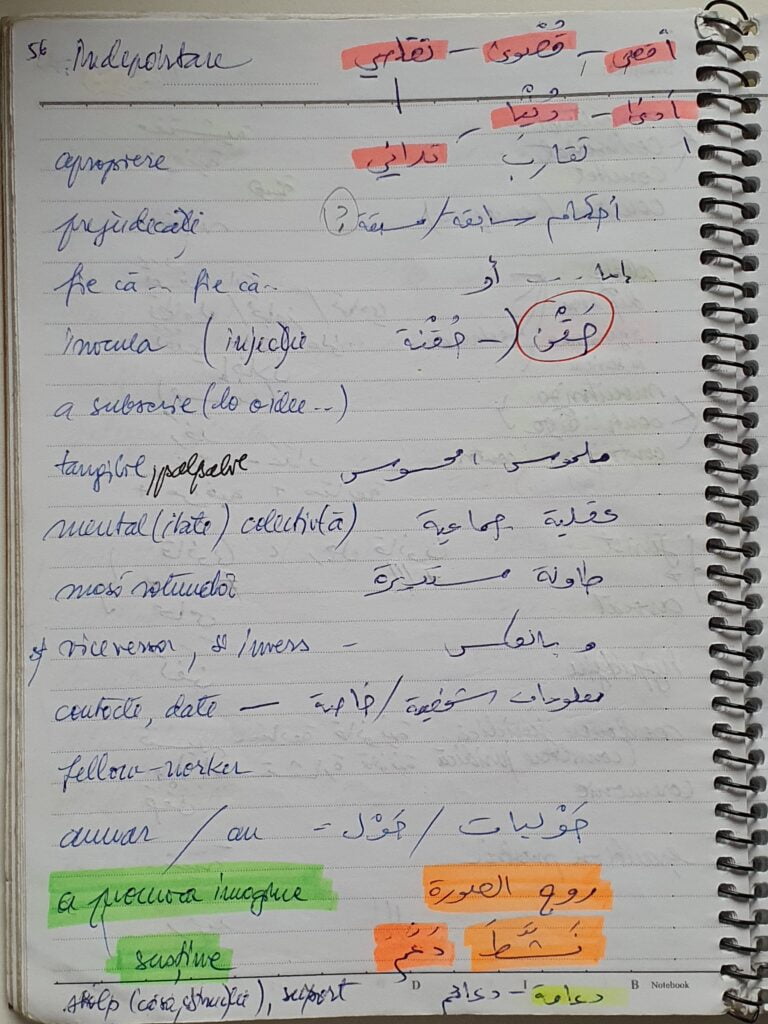 56 Îndepărtare تقاصي – قُصْوى – أقصى
تدانى – دُنْيا – أدنى
apropiere تقارب
prejudecăți أحكام سابقة / مسبقة (?)
fie că .. fie că .. إما ... أو
inocula (injecție) حُقْنة (– حَقَنَ
a subscrie (la o idee ...)
tangibil, palpabil ملموس، محسوس
mental(itate) colectivă) عقلية جماعية
masă rotundă طاولة مستديرة
și viceversa, și invers – وبالعكس
contacte, date – معلومات شخصية / خاصة
fellow-worker
anuar / an – حَوْل / حَوْليات
a promova imagine روج الصورة
susține دَعَّمَ نَشَّطَ
stîlp (casă, strucție), suport دعامة – دعائم
D I B Notebook